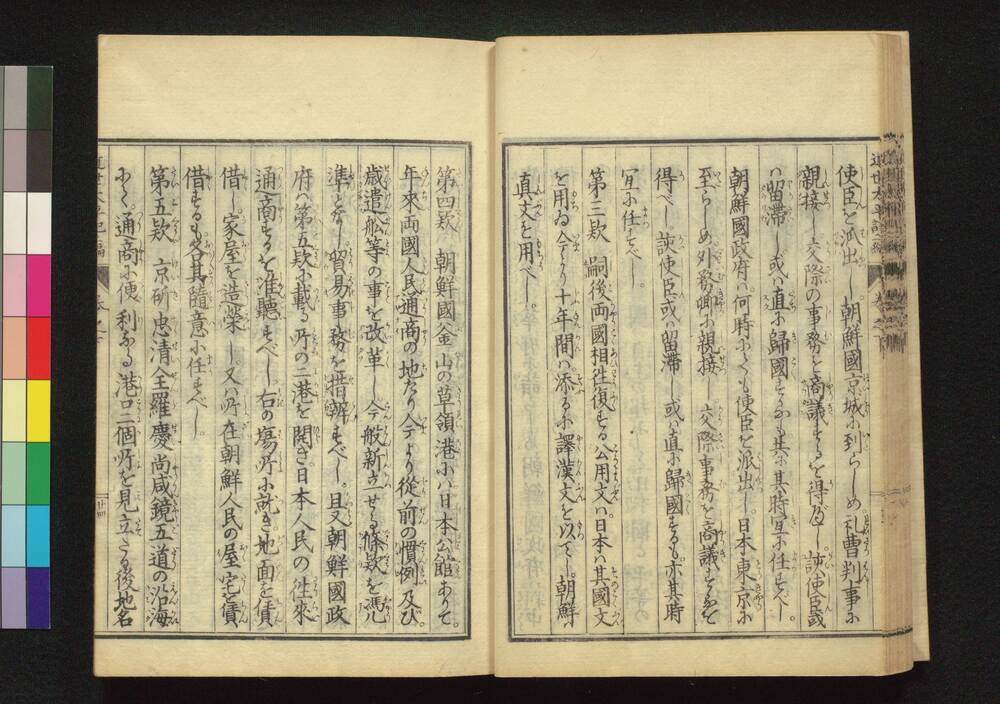 使臣を派出し朝鮮國京城に到らしめ礼曹判事に
親接し交際の事務を商議するを得べし該使臣或
ハ留滞し或ハ直に歸國するも共に其時宜に任すべし。
朝鮮國政府ハ何時にても使臣を派出し。日本東京に
至らしめ。外務卿に親接し。交際事務を商議するを
得べし該使臣或ハ留滞し。或ハ直に歸國するも亦其時
宜に任すべし。
第三欵　嗣後両國相徃復する公用文ハ。日本ハ其國文
を用ゐ今より十年間ハ添るに譯漢文を以てし。朝鮮ハ
真文を用べし。
第四欵　朝鮮國釜山の草領港にハ日本公館ありて。
年來両國人民通商の地たり今より從前の慣例及び。
歳遣舩等の事を改革し今般新立せる條欵を馮凖
となし。貿易事務を措辨すべし。且又朝鮮國政
府ハ第五欵に載る所の二港を開き。日本人民の徃來
通商するを准聽すべし。右の塲所に就き地面を賃
借し。家屋を造築し又ハ所在朝鮮人民の屋宅を賃
借するも各其隨意に任すべし。
第五欵　京圻忠清全羅慶尚咸鏡五道の沿海
にて。通商に便利なる港口二個所を見立たる後地名